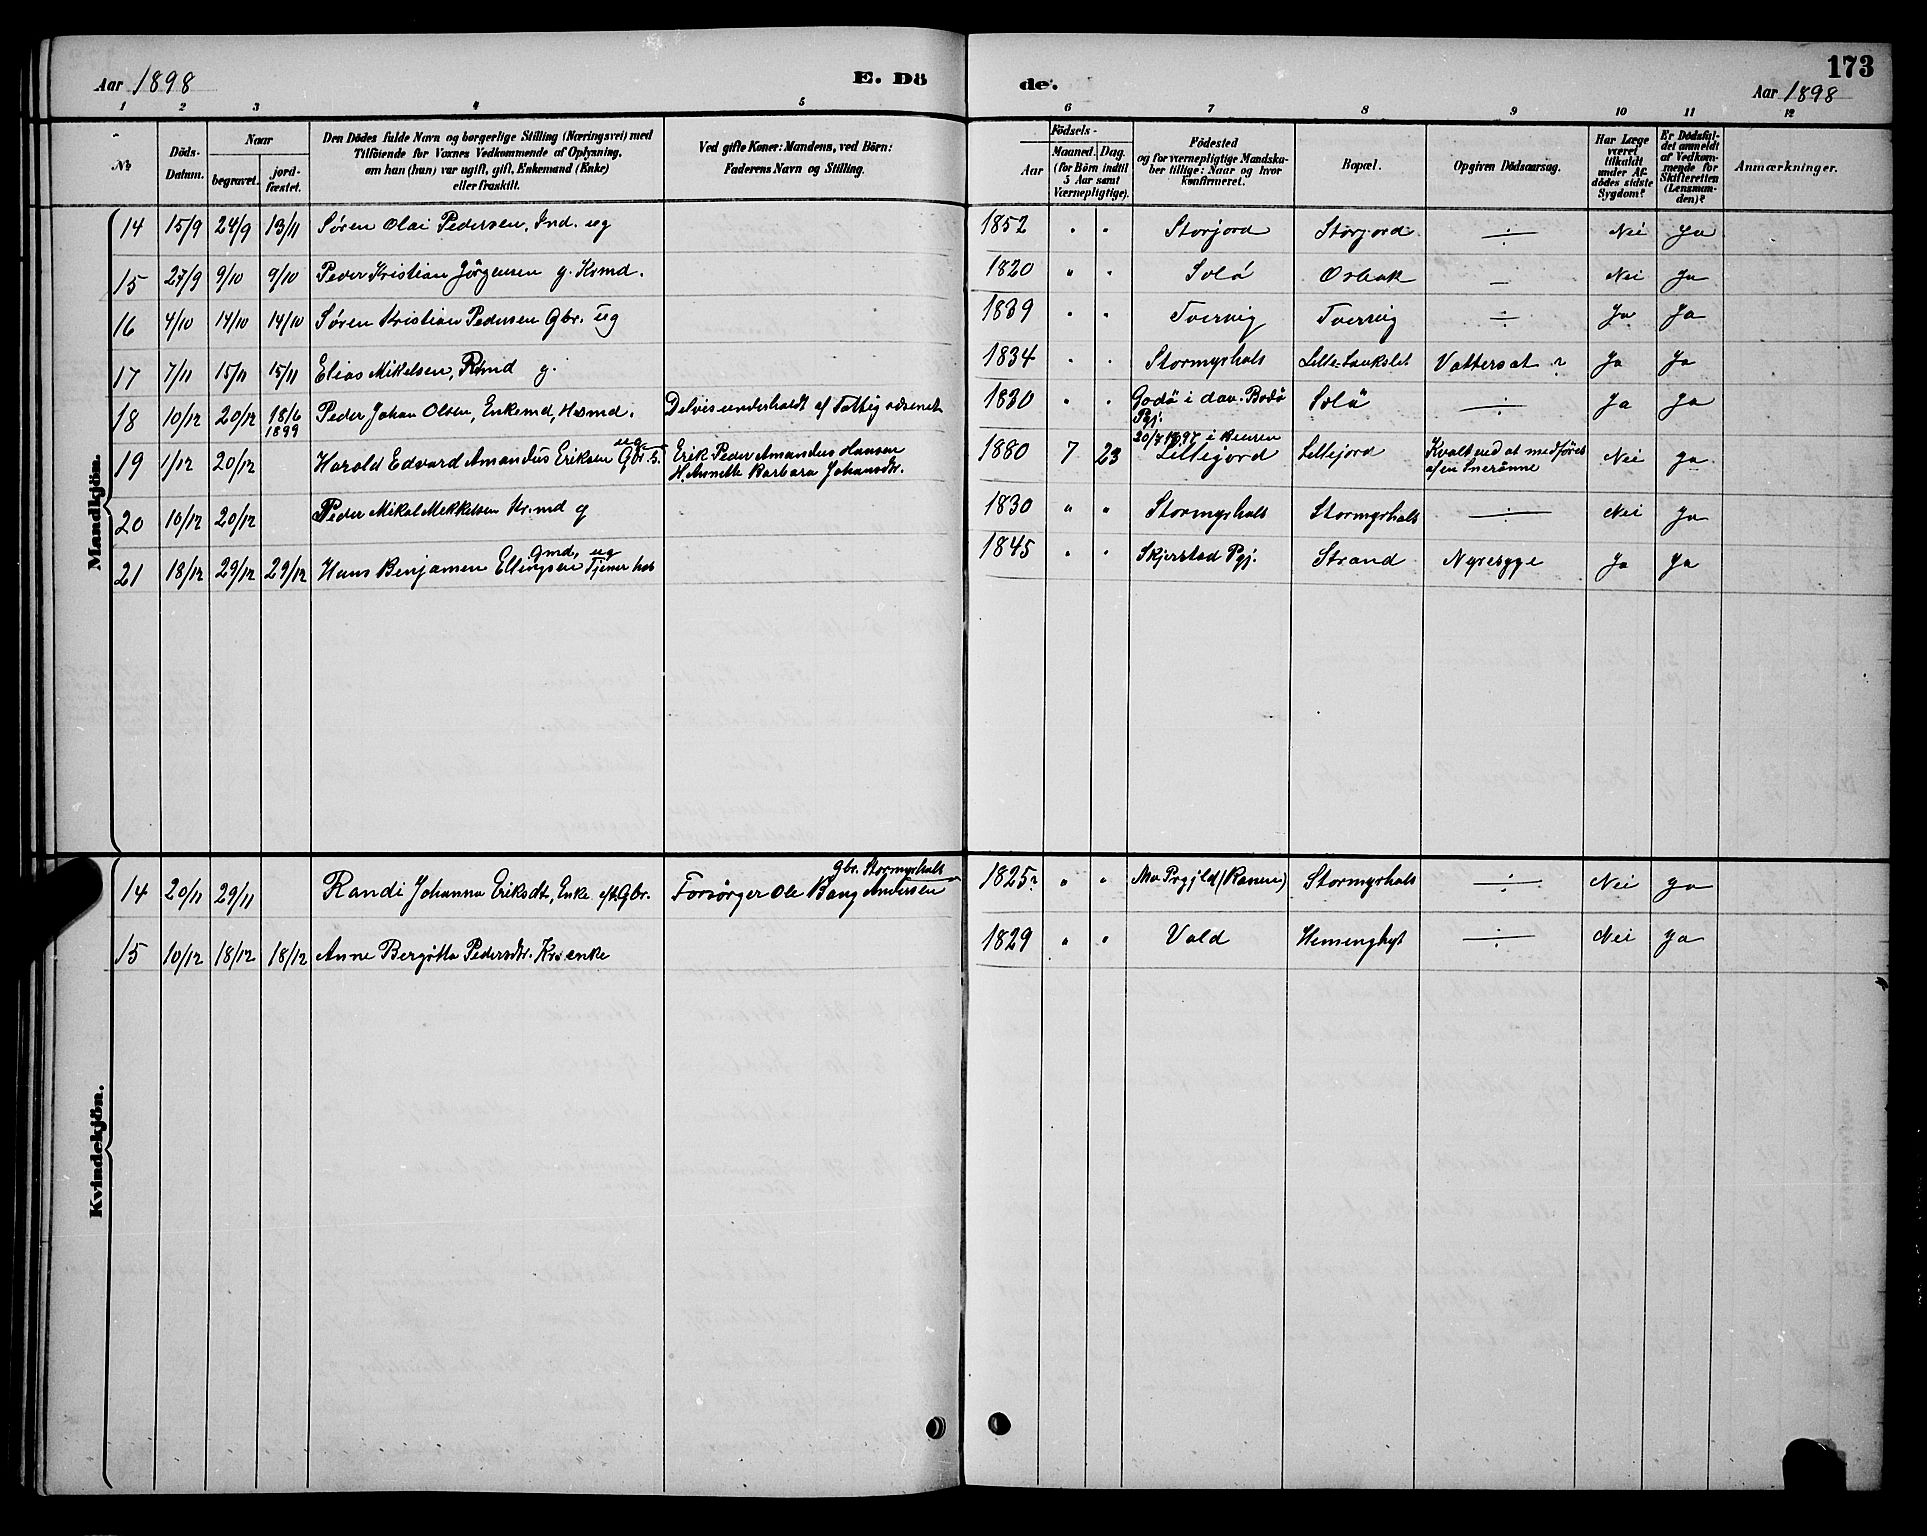 173
Aar 1898 E. Dö de. Aar 1898
1 2 3 4 5 6 7 8 9 10 11 12
№
Döds-Datum.
Naar
begravet.
jord-fæstet.
Den Dödes fulde Navn og borgerlige Stilling (Næringsvei) med
Tilföiende for Voxnes Vedkommende af Oplysning,
om han (hun) var ugift, gift, Enkemand (Enke)
eller fraskilt.
Ved gifte Koner: Mandens, ved Börn:
Faderens Navn og Stilling.
Födsels-
Aar
Maaned. Dag.
(for Börn indtil
5 Aar samt
Værnepligtige).
Födested
og for værnepligtige Mandska-
ber tillige: Naar og hvor
konfirmeret.
Bopæl.
Opgiven Dödsaarsag.
Har Læge
været
tilkaldt
under Af-
dödes sidste
Sygdom?
Er Dödsfal-
det anmeldt
af Vedkom-
mende for
Skifteretten
(Lensman-
den)?
Anmærkninger.
Mandkjön.
14 15/9 24/9 13/11 Søren Olai Pedersen, Ind. ug 1852 " " Storjord Storjord ÷ Nei Ja
15 27/9 9/10 9/10 Peder Kristian Jørgensen g. Ksmd. 1820 " " Solö Osbak – Nei Ja
16 4/10 14/10 14/10 Søren Kristian Pedersen Gbr. ug 1839 " " Tverrvig Tverrvig ÷ Ja Ja
17 7/11 15/11 15/11 Elias Mikelsen, g. 1834 " " Stormyrhals Lille-Laukslet Vattersot ? Ja Ja
18 10/12 20/12 18/6 1899 Peder Johan Olsen, Enkemd, Hsmd. Delvis underholdt af Fattigvæsenet 1830 " " Godö i dav. Bodö Pgj. Solö ÷ Ja Ja
19 1/12 20/12 Harald Edvard Amandus Eriksen ug Gbr. s. Erik Peder Amandus Hansen
H. Annette Barbara Johansdtr. 1880 7 23 Lillejord Lillejord Kvalt ved at medföres
af en Snerønne Nei Ja
20 10/12 20/12 Peder Mikal Mikkelsen g 1830 " " Stormyrhals Stormyrhals ÷ Nei Ja
21 18/12 29/12 29/12 Hans Benjamen Ellingsen Gmd, ug Tjener hos 1845 " " Skjerstad Pgj. Strand Nyresyge Ja Ja
Kvindekjön.
14 20/11 29/11 Randi Johanna Eriksdt, Enke eft. Gbr. Forsörger Ole Bang Andersen
Gbr. Stormyrhals 1825? " " Mo Prgjld (Ranen) Stormyrhals ÷ Nei Ja
15 10/12 18/12 18/12 Anne Bergitta Pedersdtr. Ksenke 1829 " " Vold Heminghyt ÷ Nei Ja